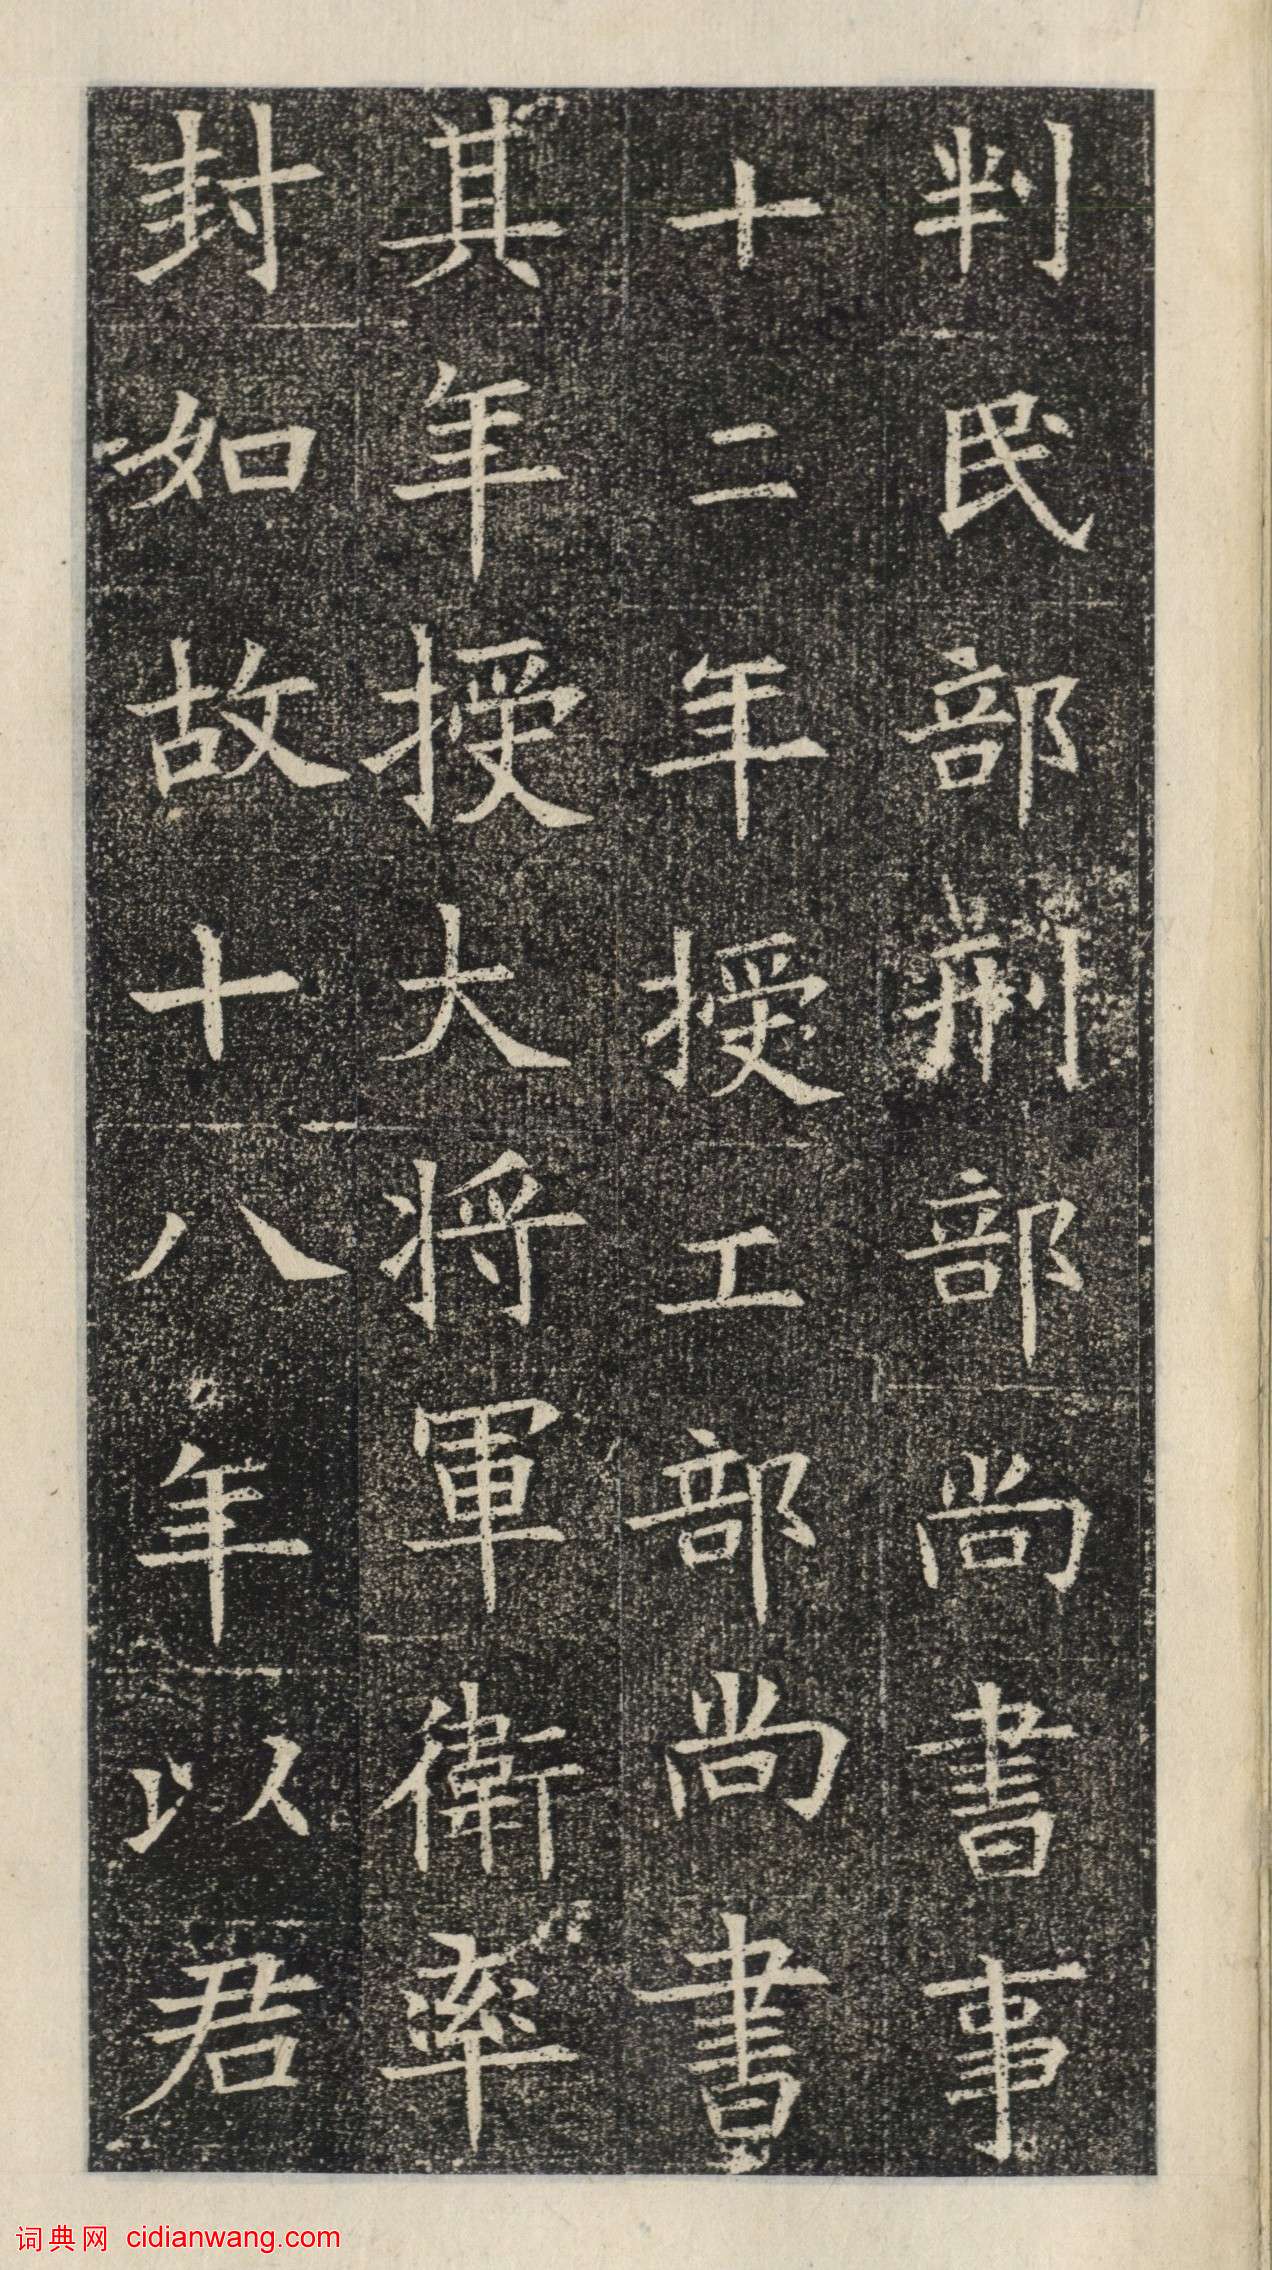 判民部刑部尚書事
十二年授工部尚書
其年授大将軍衛率
封如故十八年以君
词典网 cidianwang.com